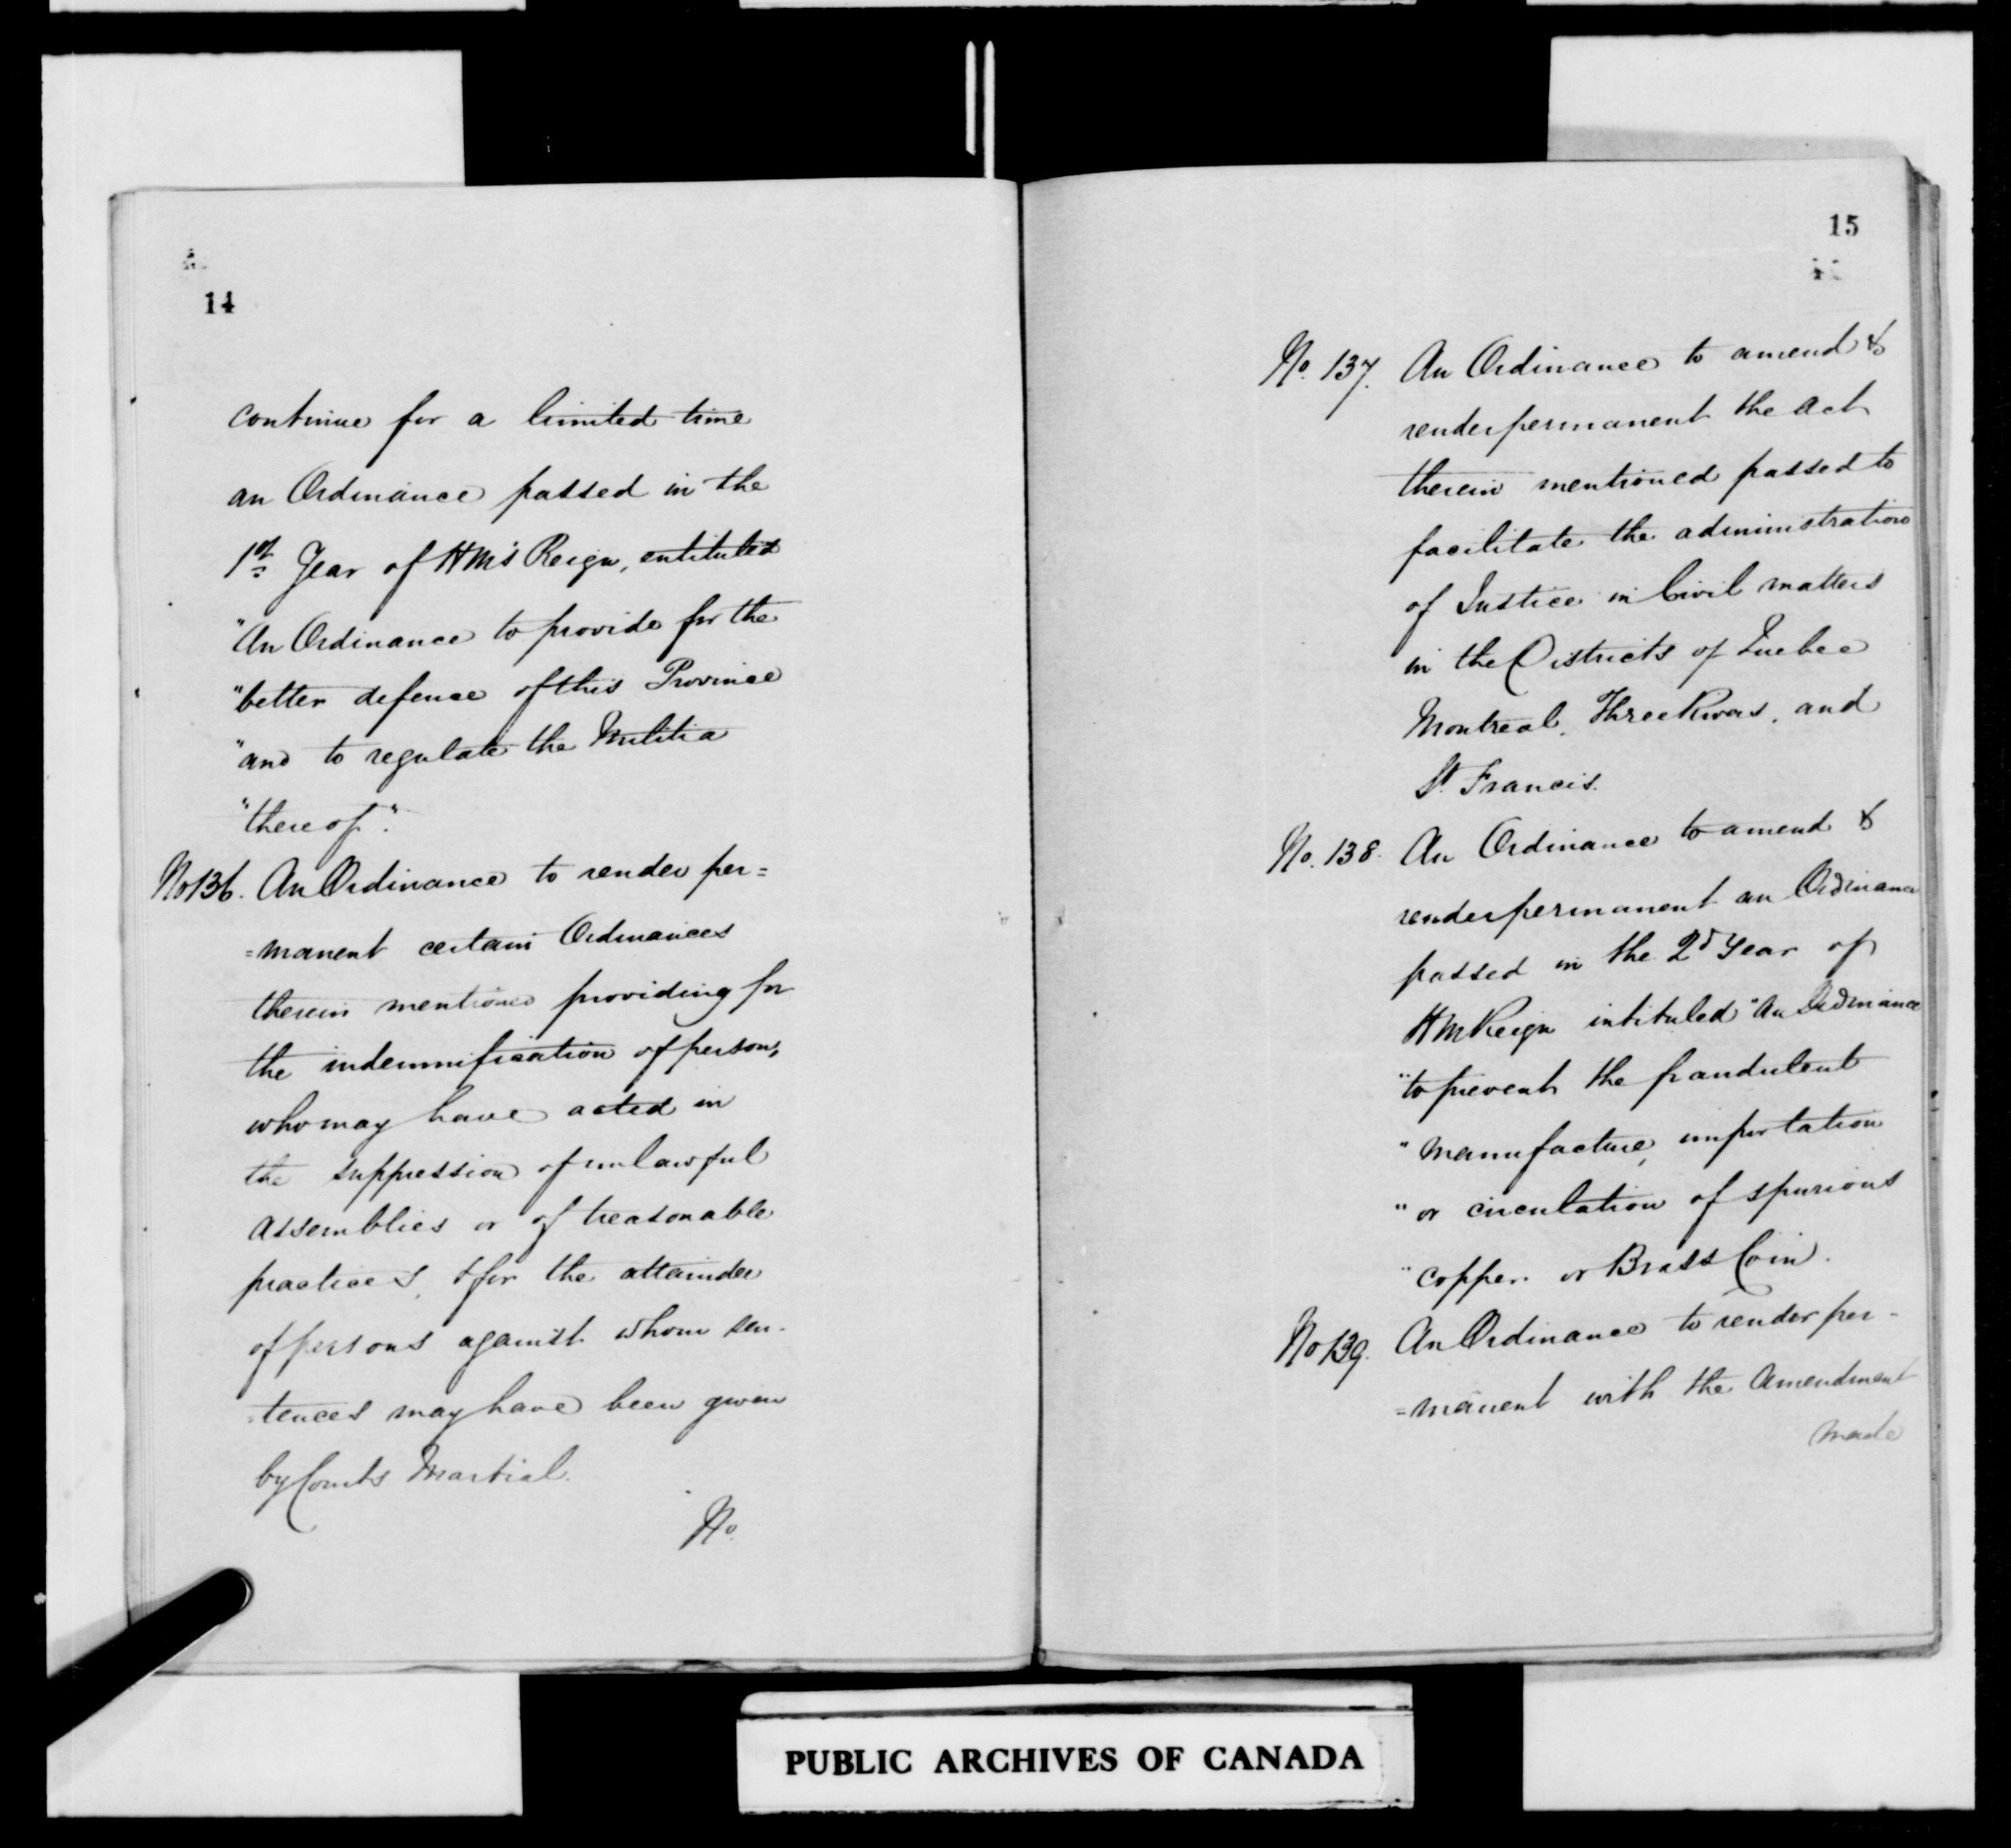 14
continue for a limited time
an Ordinance passed in the
1st Year of HM's Reign, entituled
"An Ordinance to provide for the
"better defence of this Province
"and to regulate the Militia
"thereof".
No 136. An Ordinance to render per=
=manent certain Ordinances
therein mentioned providing for
the indemnification of persons,
who may have acted in
the suppression of unlawful
assemblies or of treasonable
practices, & for the attainder
of persons against whom sen-
-tences may have been given
by Courts Martial.
No.
15
No. 137. An Ordinance to amend &
render permanent the Act
therein mentioned passed to
facilitate the administration
of Justice in Civil matters
in the Districts of Quebec
Montreal, Three Rivers, and
St. Francis.
No. 138. An Ordinance to amend &
render permanent an Ordinance
passed in the 2d Year of
HM Reign intituled "An Ordinance
"to prevent the fraudulent
"manufacture, importation
"or circulation of spurious
"copper or Brass Coin.
No 139. An Ordinance to render per-
=manent with the Amendment
made
PUBLIC ARCHIVES OF CANADA